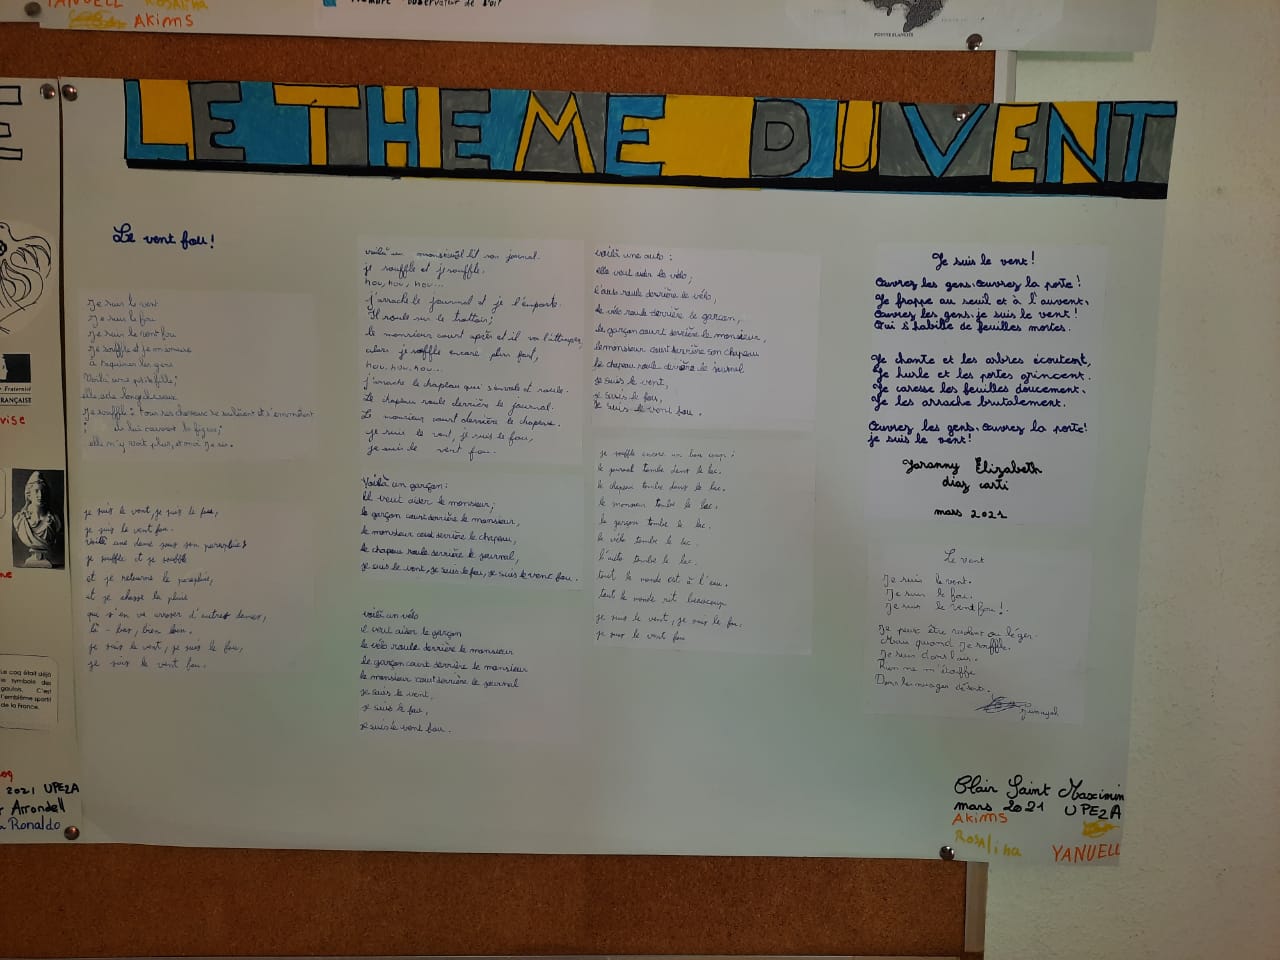 YANUELL Rosalina
AKIMS
POINTE BLANCHE
E
E
Fraternité
FRANÇAISE
vise
ne
Le coq était déjà
le symbole des
gaulois. C'est
l'emblème sportif
de la France.
2021 UPE2A
Arrondell
Ronaldo
LE THEME DU VENT
Le vent fou!
Je suis le vent
Je suis le fou
Je suis le vent fou
Je souffle et je m'amuse
à taquiner les gens
Voilà une petite fille;
elle a de longs cheveux
Je souffle: tous ses cheveux se soulèvent et s'emmêlent
lui couvrent la figure;
elle n'y voit plus, et moi je ris.
je suis le vent, je suis le fou,
je suis le vent fou.
voilà une dame sous son parapluie
je souffle et je souffle
et je retourne le parapluie,
et je chasse la pluie
qui s'en va arroser d'autres dames,
là-bas, bien loin.
je suis le vent, je suis le fou,
je suis le vent fou.
voilà un monsieur lit son journal.
je souffle et je souffle.
hou, hou, hou...
j'arrache le journal et je l'emporte.
Il roule sur le trottoir;
le monsieur court après et il va l'attraper,
alors je souffle encore plus fort,
hou, hou, hou...
j'arrache le chapeau qui s'envole et roule.
Le chapeau roule derrière le journal.
Le monsieur court derrière le chapeau.
je suis le vent, je suis le fou,
je suis le vent fou.
Voilà un garçon:
Il veut aider le monsieur;
le garçon court derrière le monsieur,
le monsieur court derrière le chapeau,
le chapeau roule derrière le journal,
je suis le vent, je suis le fou, je suis le vent fou.
voilà un vélo
il veut aider le garçon
le vélo roule derrière le monsieur
le garçon court derrière le monsieur
le monsieur court derrière le journal
je suis le vent,
je suis le fou,
je suis le vent fou.
voilà une auto:
elle veut aider le vélo;
l'auto roule derrière le vélo,
le vélo roule derrière le garçon,
le garçon court derrière le monsieur,
le monsieur court derrière son chapeau
le chapeau roule derrière le journal
je suis le vent,
je suis le fou,
je suis le vent fou.
je souffle encore un bon coup:
le journal tombe dans le lac.
le chapeau tombe dans le lac.
le monsieur tombe le lac.
le garçon tombe le lac.
le vélo tombe le lac.
l'auto tombe le lac.
tout le monde est à l'eau.
tout le monde rit beaucoup
je suis le vent, je suis le fou.
je suis le vent fou
Je suis le vent!
Ouvrez les gens. Ouvrez la porte!
Je frappe au seuil et à l'auvent.
Ouvrez les gens. je suis le vent!
Qui s'habille de feuilles mortes.
Je chante et les arbres écoutent,
Je hurle et les portes grincent.
Je caresse les feuilles doucement.
Je les arrache brutalement.
Ouvrez les gens. Ouvrez la porte!
je suis le vent!
Yaranny Elizabeth
diaz carti
mars 2021
Le vent
Je suis le vent.
Je suis le fou.
Je suis le vent fou!.
Je peux être violent ou léger.
Mais quand je souffle.
Je suis dans l'air.
Rien ne m'étouffe
Dans les nuages désert.
Clair Saint Maximin
mars 2021 UPE2A
AKIMS
Rosalina YANUELL